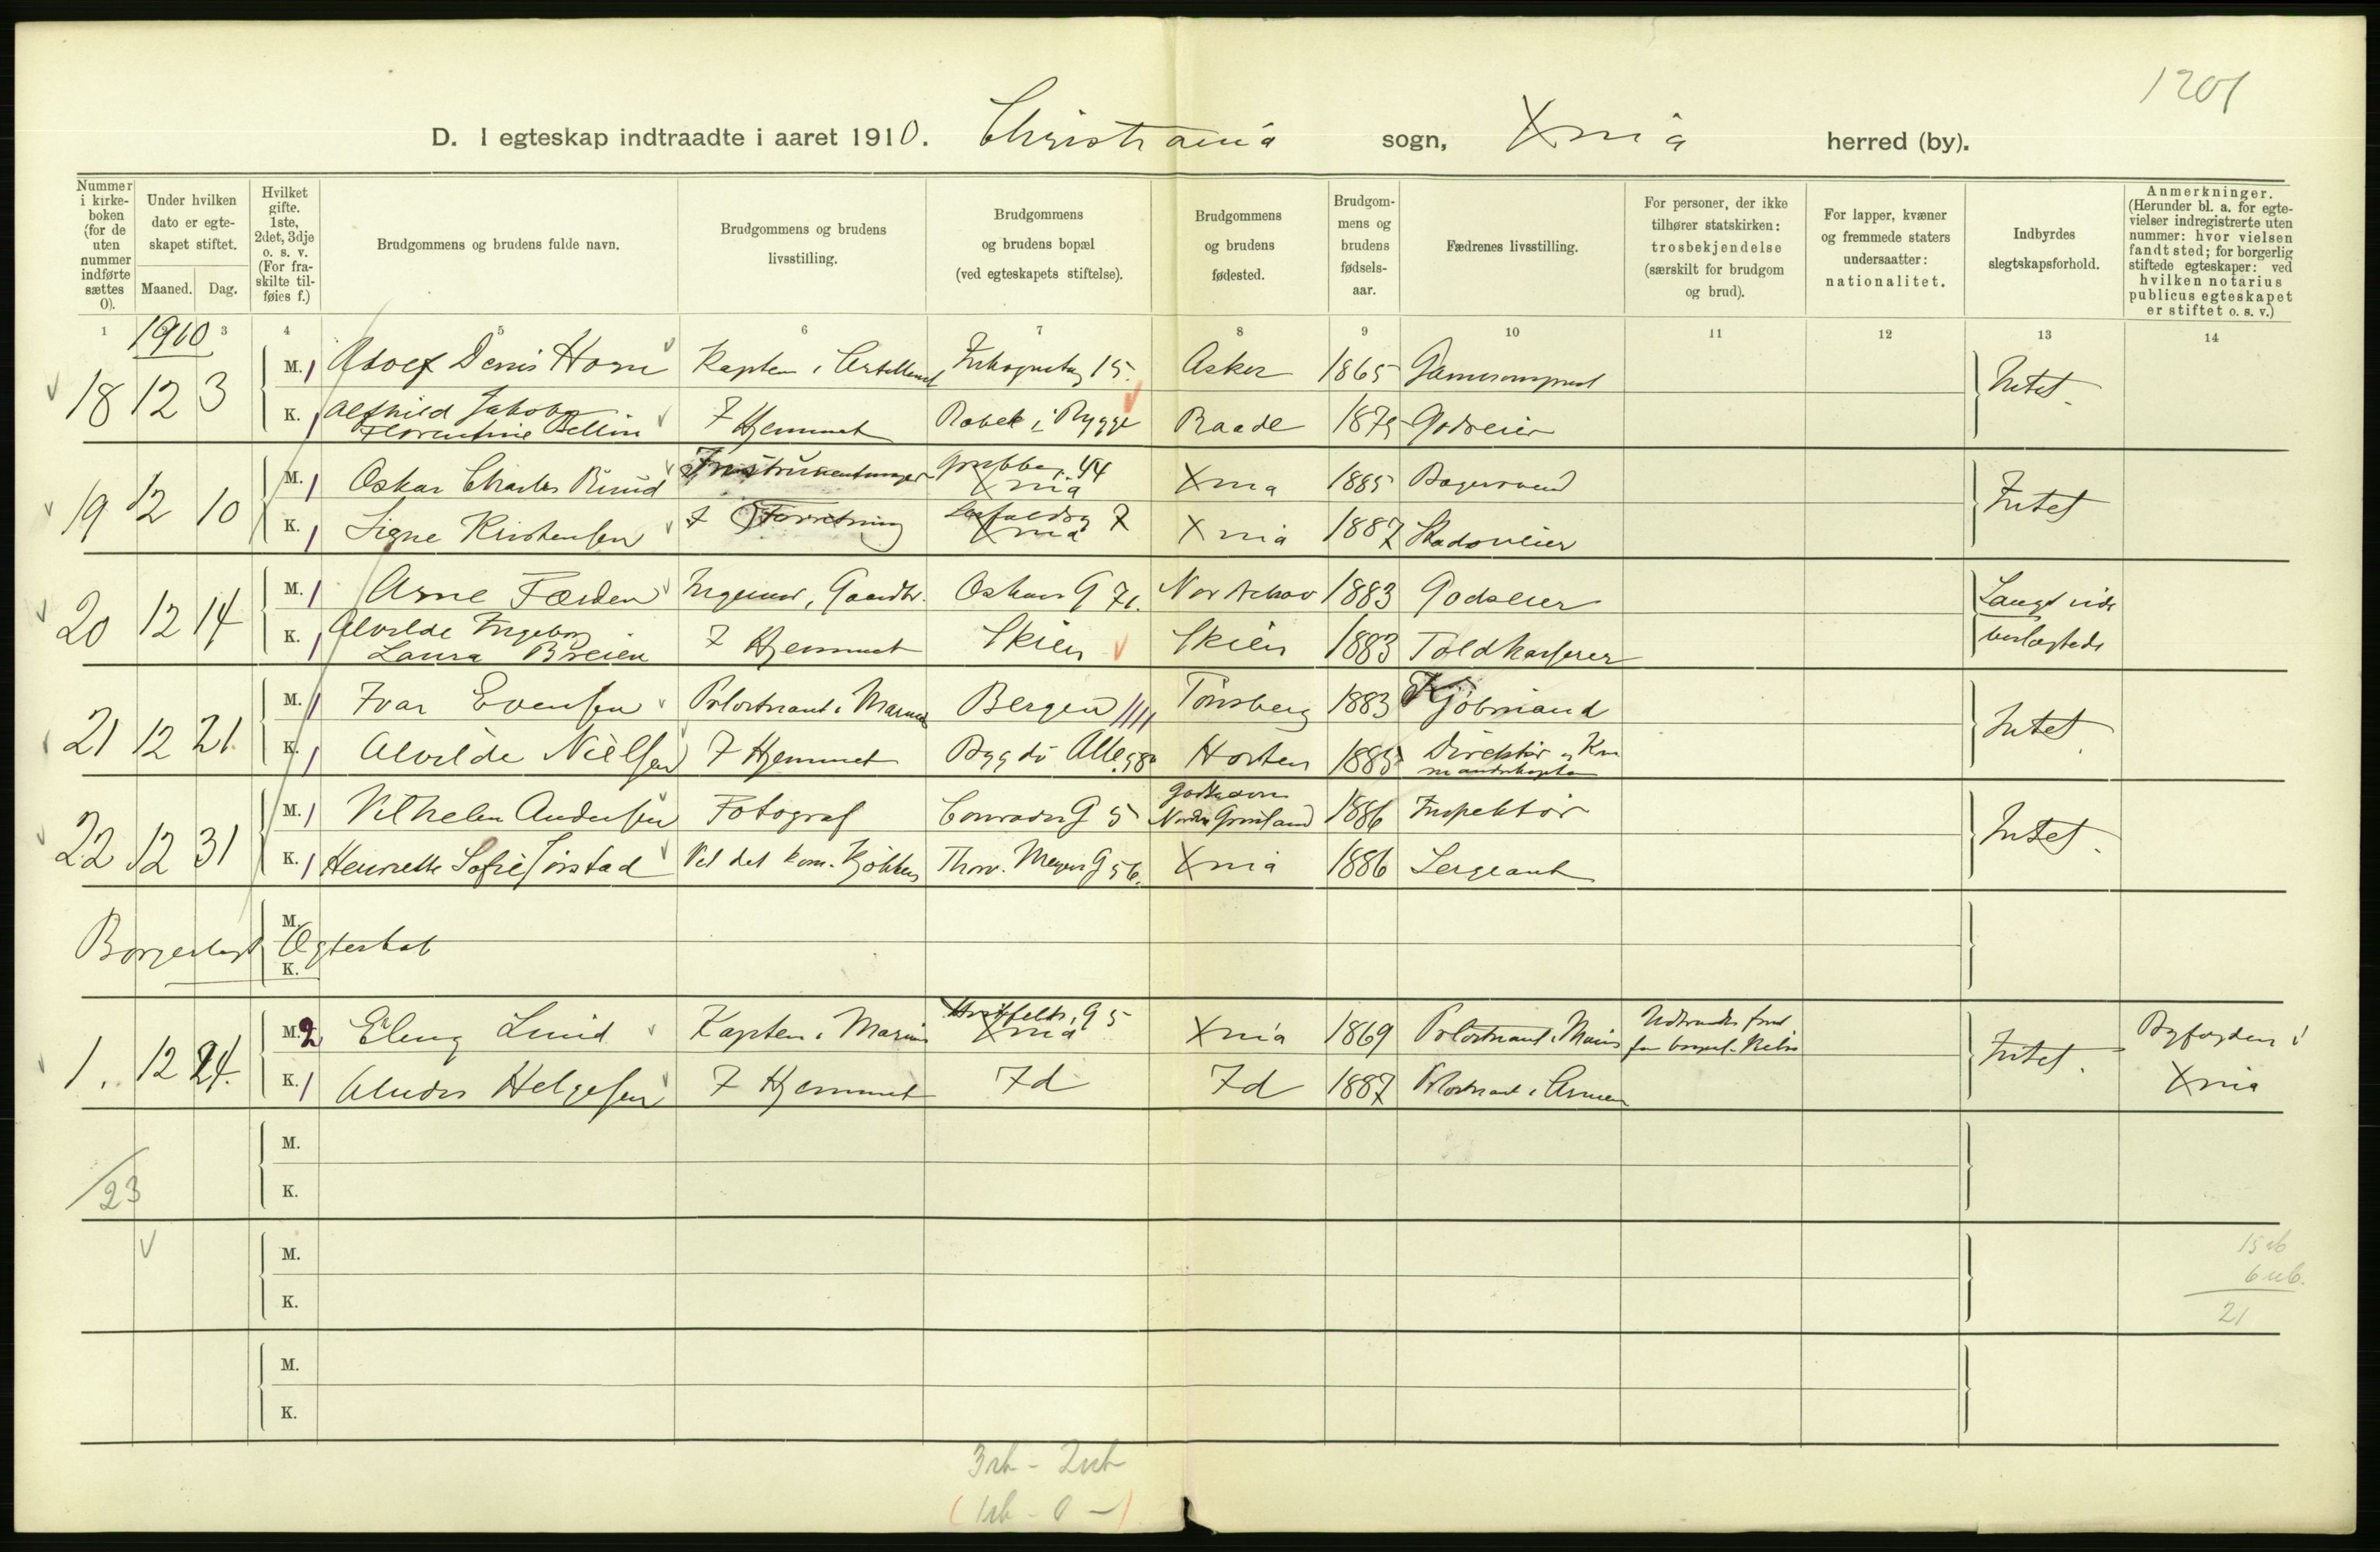 1201
D. I egteskap indtraadte i aaret 1910. Christiania sogn, Xnia herred (by).
Nummer i kirkeboken (for de uten nummer indførte sættes 0).
Under hvilken dato er egteskapet stiftet.
Maaned. Dag.
Hvilket gifte. 1ste, 2det, 3dje o. s. v. (For fraskilte tilføies f.)
Brudgommens og brudens fulde navn.
Brudgommens og brudens livsstilling.
Brudgommens og brudens bopæl (ved egteskapets stiftelse).
Brudgommens og brudens fødested.
Brudgommens og brudens fødselsaar.
Fædrenes livsstilling.
For personer, der ikke tilhører statskirken: trosbekjendelse (særskilt for brudgom og brud).
For lapper, kvæner og fremmede staters undersaatter: nationalitet.
Indbyrdes slegtskapsforhold.
Anmerkninger. (Herunder bl. a. for egtevielser indregistrerte uten nummer: hvor vielsen fandt sted; for borgerlig stiftede egteskaper: ved hvilken notarius publicus egteskapet er stiftet o. s. v.)
1 3 4 5 6 7 8 9 10 11 12 13 14
1910
18 12 3 M. 1 Adolf Denis Horn Kaptein i Artilleriet 15. Asker 1865 Intet.
K. 1 Alfhild Jakobe Florentine Bellin I Hjemmet i Rygge Raade 1879 Godseier
19 12 10 M. 1 Oskar Charles Ruud Instrumentmager Grubbeg. 44 Xnia Xnia 1885 Intet
K. 1 Signe Kristensen I Forretning 7 Xnia Xnia 1887 Stadsveier
20 12 14 M. 1 Arne Færden Ingeniør, Gaardbr. Oskars G 71. Norderhov 1883 Godseier Langt ude beslægtede
K. 1 Alvilde Ingeborg Laura Breien I Hjemmet Skien Skien 1883 Toldkasserer
21 12 21. M. 1 Ivar Evensen Prløitnant i Marinen Bergen Tønsberg 1883 Kjøbmand Intet.
K. 1 Alvilde Nielsen I Hjemmet Bygdø Alle 58 Horten 1885 Direktør og Kommandørkaptein
22 12 31 M. 1 Vilhelm Andersen Fotograf Conradis G 5 Godthaab Nordre Grønland 1886 Inspektør Intet.
K. 1 Henriette Sofie Jörstad Ved det kom. Kjøkken Thorv. Meyers G 56. Xnia 1886 Sergeant
Borgerligt Ægteskab
M.
K.
1. 12 24. M. 2 Eleng Lund Kaptein i Marinen Huitfeldts G 5 Xnia Xnia 1869 Prløitnant i Marinen Intet. Byfogden i Xnia
K. 1 Helgesen I Hjemmet Id Id 1887 Prløitnant i Armeen
M.
K.
23
M.
K.
M.
K.
15 rb
6 ub.
21
3 rb - 2 ub
(1 rb - 0 -)